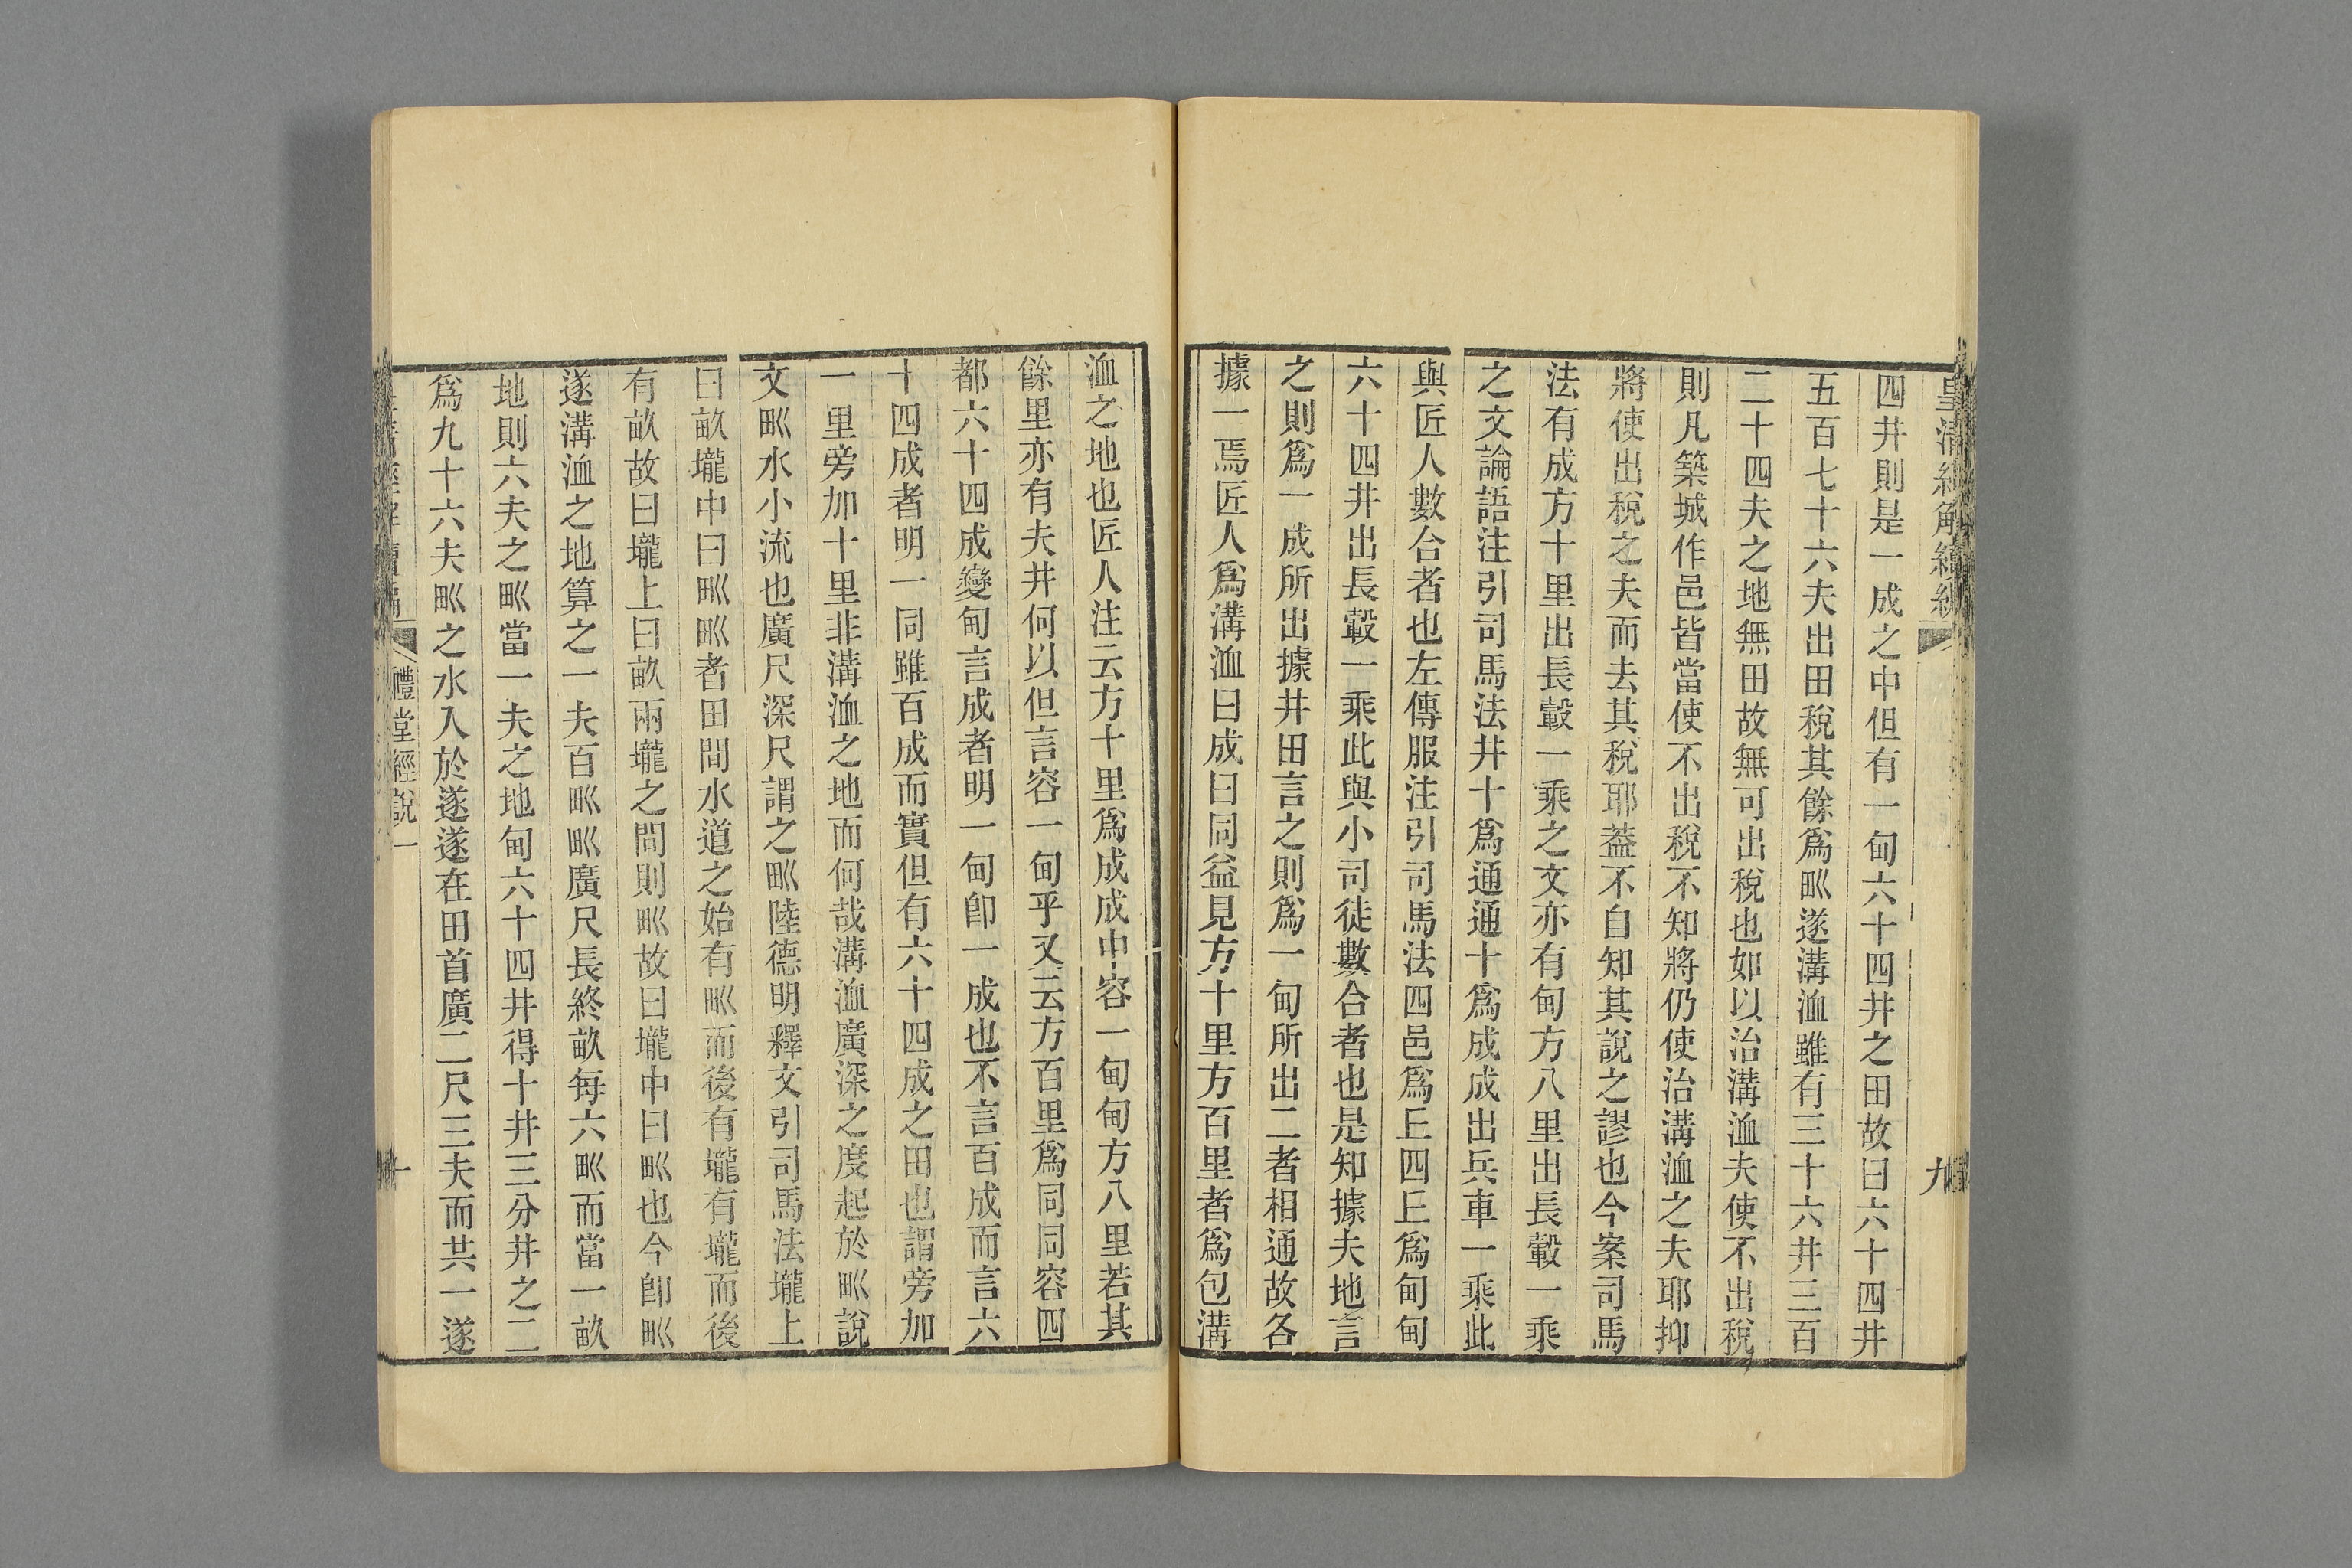 皇清經解續編
九
四井則是一成之中但有一甸六十四井之田故曰六十四井
五百七十六夫出田稅其餘爲甽遂溝洫雖有三十六井三百
二十四夫之地無田故無可出稅也如以治溝洫夫使不出稅
則凡築城作邑皆當使不出稅不知將仍使治溝洫之夫耶抑
將使出稅之夫而去其稅耶葢不自知其說之謬也今案司馬
法有成方十里出長轂一乘之文亦有甸方八里出長轂一乘
之文論語注引司馬法井十爲通通十爲成成出兵車一乘此
與匠人數合者也左傳服注引司馬法四邑爲𠀉四𠀉爲甸甸
六十四井出長轂一乘此與小司徒數合者也是知據夫地言
之則爲一成所出據井田言之則爲一甸所出二者相通故各
據一焉匠人爲溝洫曰成曰同益見方十里方百里者爲包溝
洫之地也匠人注云方十里爲成成中容一甸甸方八里若其
餘里亦有夫井何以但言容一甸乎又云方百里爲同同容四
都六十四成變甸言成者明一甸卽一成也不言百成而言六
十四成者明一同雖百成而實但有六十四成之田也謂旁加
一里旁加十里非溝洫之地而何哉溝洫廣深之度起於甽說
文甽水小流也廣尺深尺謂之甽陸德明釋文引司馬法壠上
曰畝壠中曰甽甽者田間水道之始有甽而後有壠有壠而後
有畝故曰壠上曰畝兩壠之間則甽故曰壠中曰甽也今卽甽
遂溝洫之地算之一夫百甽甽廣尺長終畝每六甽而當一畝
地則六夫之甽當一夫之地甸六十四井得十井三分井之二
爲九十六夫甽之水入於遂遂在田首廣二尺三夫而共一遂
禮堂經說一